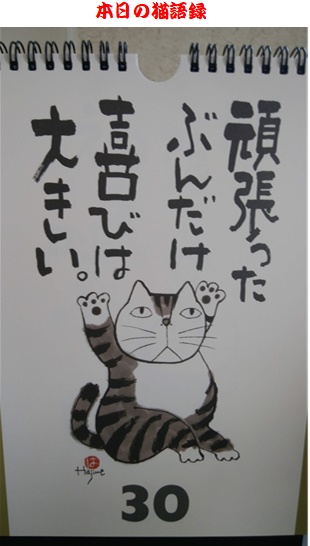 本日の猫語録
頑張った
ぶんだけ
喜びは
大きい。
は
Hajime
30